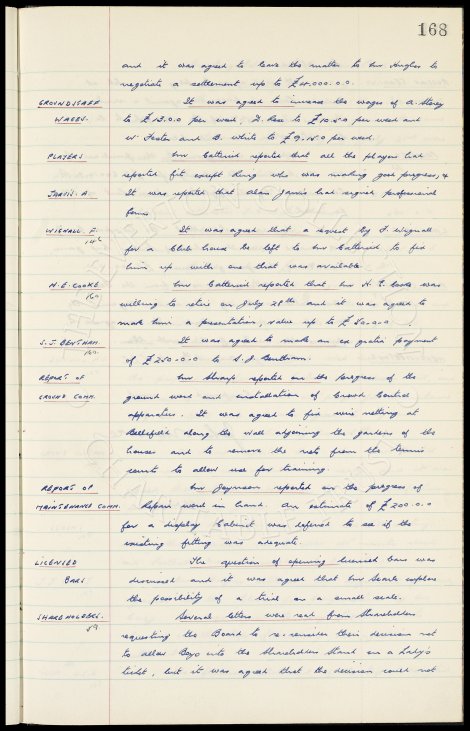 168
and it was agreed to leave the matter to Mr Hughes to
negotiate a settlement up to £
GROUNDSTAFF It was agreed to increase the wages of A. Storey
WAGES. to £13.0.0 per week, to £10.5.0 per week and
W. Foster and B. White to £9.15.0 per week.
PLAYERS Mr Catterick reported that all the players had
reported fit except King who was making good progress, &
JARVIS. A. It was reported that Alan Jarvis had signed professional
forms
WIGNALL F. It was agreed that a request by F. Wignall
146 for a Club house be left to Mr Catterick to fix
him up with one that was available
H.E. COOKE Mr Catterick reported that Mr H. E. Cooke was
160 willing to retire on July 28th and it was agreed to
mark him a presentation, value up to £50.0.0.
S.J. BENTHAM. It was agreed to make an ex gratia payment
160. of £250.0.0 to S. J. Bentham.
REPORT OF Mr Sharp reported on the progress of
GROUND COMM. ground work and installation of Crowd Control
apparatus. It was agreed to fix wire netting at
Bellefield along the wall adjoining the gardens of the
houses and to remove the nets from the tennis
courts to allow use for training
REPORT OF Mr Joynson reported on the progress of
MAINTENANCE COMM. Repair work in hand. An estimate of £200.0.0
for a display Cabinet was deferred to see if the
existing fitting was adequate.
LICENSED The question of opening licensed bars was
BARS discussed and it was agreed that Mr Searle explore
the possibility of a trial on a small scale.
SHAREHOLDERS. Several letters were read from Shareholders
59 requesting the Board to re-consider their decision not
to allow Boys into the Shareholders Stand on a Lady's
ticket, but it was agreed that the decision could not